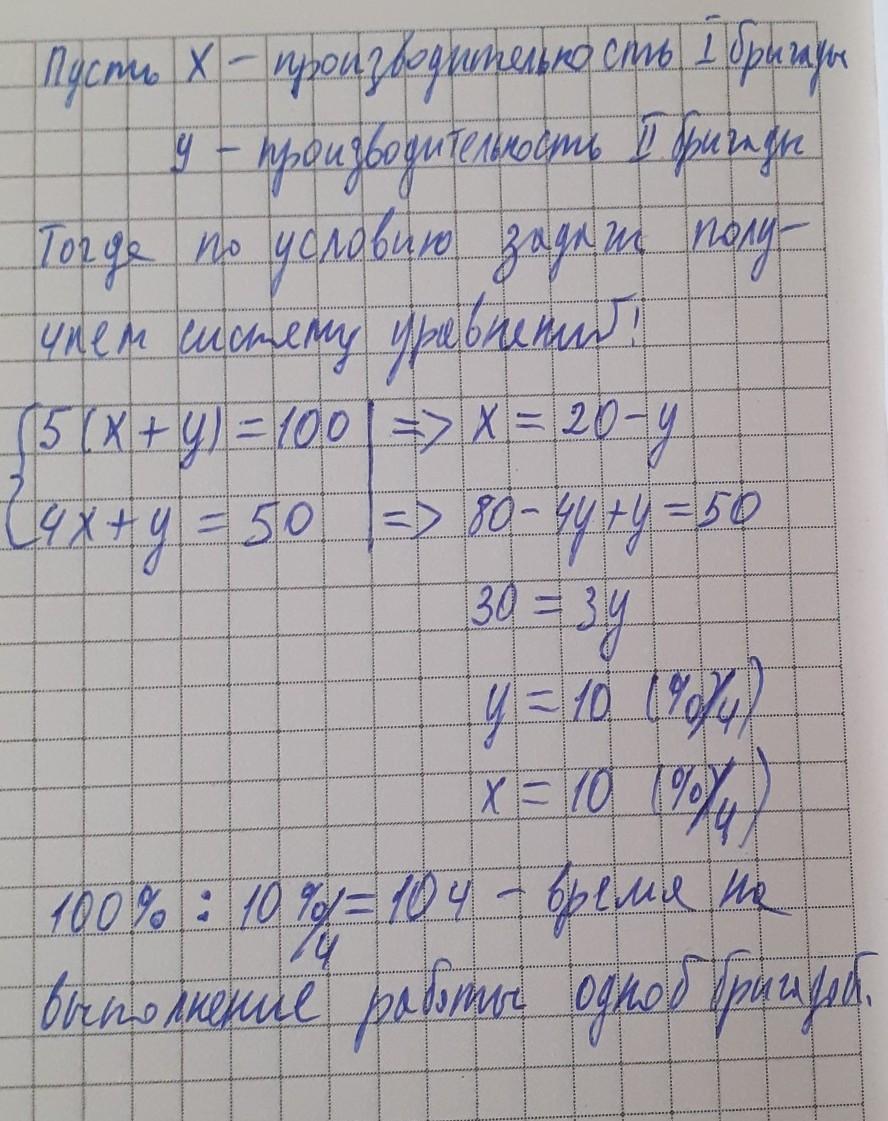 Пусть x – производительность I бригады
y – производительность II бригады
Тогда по условию задачи полу-
чаем систему уравнений:
5(x+y)=100 => x = 20-y
4x+y = 50 => 80-4y+y=50
30 = 3y
y = 10 (%/ч)
x = 10 (%/ч)
100% : 10%/ч = 10ч – время на
выполнение работы одной бригадой.